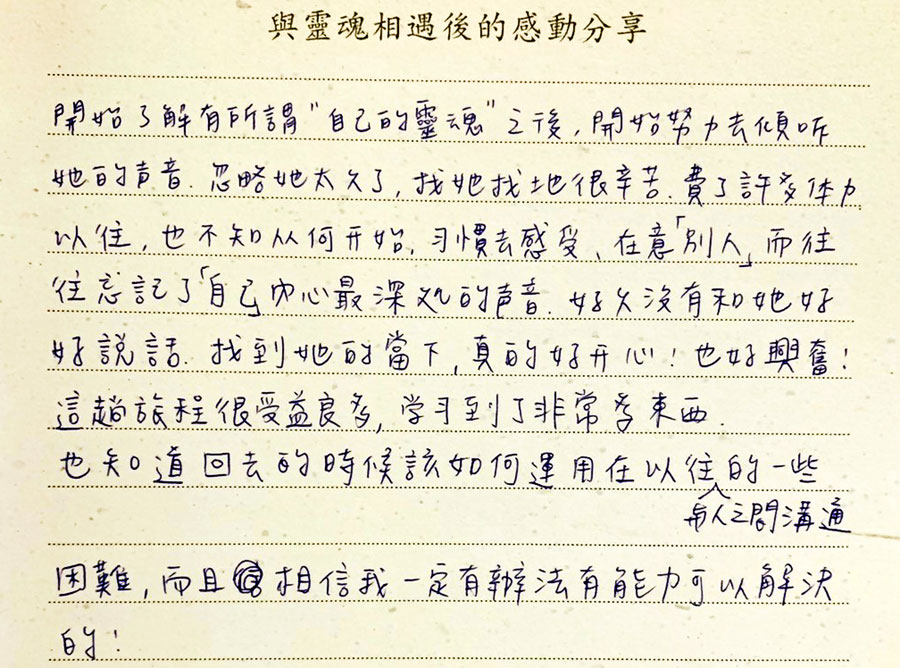 與靈魂相遇後的感動分享
開始了解有所謂"自己的靈魂"之後,開始努力去傾听
她的声音.忽略她太久了,找她找地很辛苦.費了許多体力
以往,也不知从何开始,习慣去感受、在意「別人」而往
往忘記了「自己」內心最深处的声音.好久沒有和她好
好說話.找到她的當下,真的好开心!也好興奮!
這趟旅程很受益良多,学习到了非常多東西.
也知道回去的時候該如何運用在以往的一些
與人之間溝通
困難,而且相信我一定有辦法有能力可以解決
的!